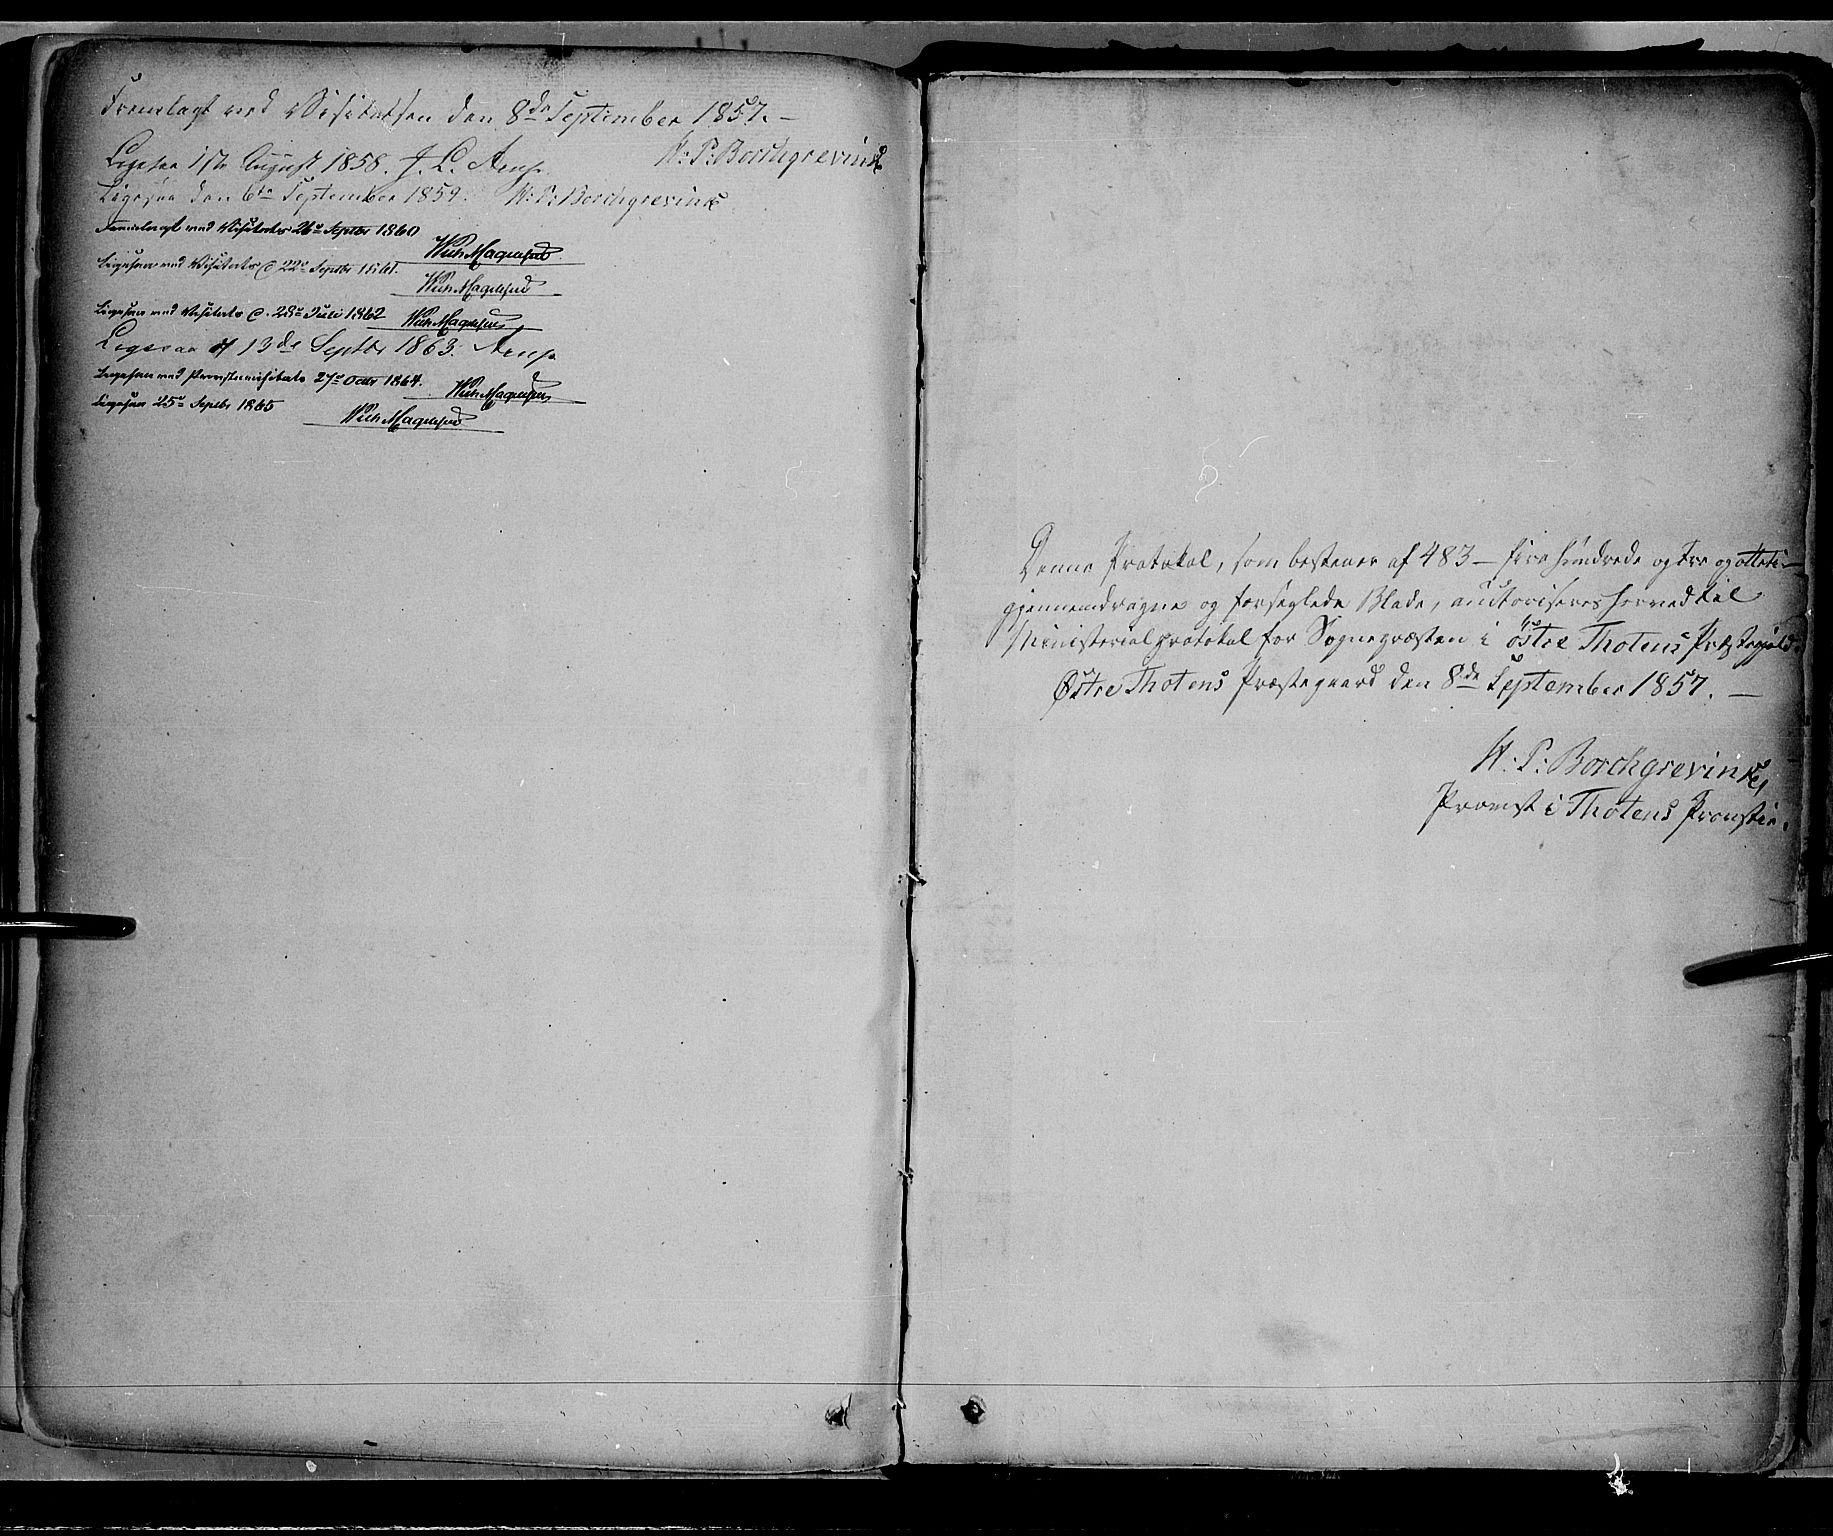 Fremlagt ved Visitatsen den 8de September 1857. —
H: P: Borchgrevink
Ligesaa 1ste August 1858. J. L. Arup.
Ligesaa den 6te September 1859. H: P: Borchgrevink
Fremlagt ved Visitats 26de Septbr 1860
Wilh Magelssen
Ligesaa ved Visitats d 22de Septbr 1861.
Wilh Magelssen
Ligesaa ved Visitats d. 28de Juli 1862 Wilh Magelssen
Ligesaa 13de Septbr 1863. Arup
Ligesaa ved Provstevisitats 27de Octbr 1864. Wilh Magelssen
Ligesaa 25de Septbr 1865
Wilh Magelssen
Denne Protokol, som bestaaer af 483 — fire hundrede og tre og otteti —
gjennemdragne og forseglede Blade, autoriseres herved til
Ministerialprotokol for Sognepræsten i östre Thotens Præstegjeld.
Østre Thotens Præstegaard den 8de September 1857. —
H: P: Borchgrevink,
Provst i Thotens Provstie.